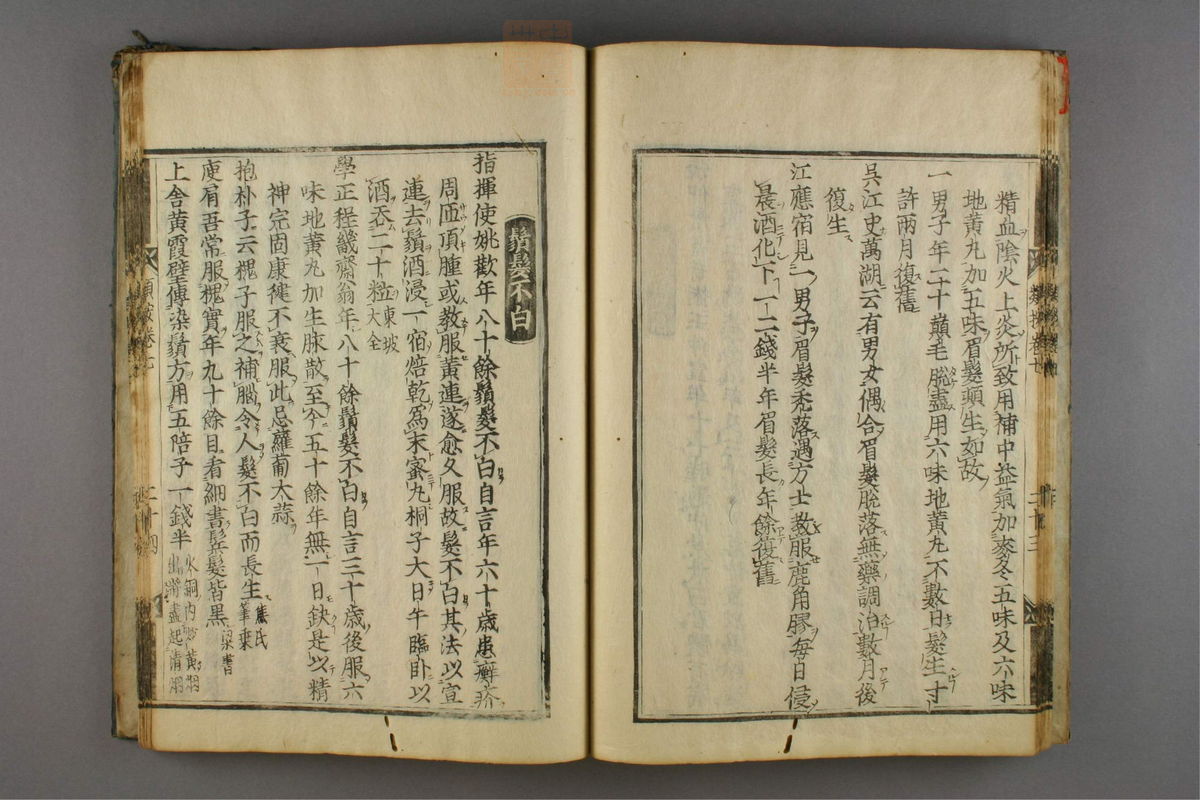 精血陰火上炎所致用補中益氣加麥冬五味及六味
地黄丸加五味眉髮頓生如故
一男子年二十巔毛脫盡用六味地黄丸不數日髮生寸
許兩月復舊
吳江史萬湖云有男女偶合眉髮脫落無藥調治數月後
復生
江應宿見一男子眉髮禿落遇方士教服鹿角膠每日侵
晨酒化下一二錢半年眉髮長年餘復舊
鬚髮不白
指揮使姚歡年八十餘鬚髮不白自言年六十歲患癬疥
周匝頂腫或教服黄連遂愈久服故髮不白其法以宣
連去鬚酒浸一宿焙乾爲末蜜丸桐子大日午臨臥以
酒吞二十粒東坡大全
學正程畿齋翁年八十餘鬚髮不白自言三十歲後服六
味地黄丸加生脉散至今五十餘年無一日缺是以精
神完固康健不衰服此忌蘿蔔大蒜
抱朴子云槐子服之補腦令人髮不白而長生熊氏筆乘
庾肩吾常服槐實年九十餘目看細書鬂髮皆黒梁書
上舍黄霞壁傳染鬚方用五陪子一錢半火銅內炒黄烟出滯盡起清烟
類案卷七
二十三
二十四